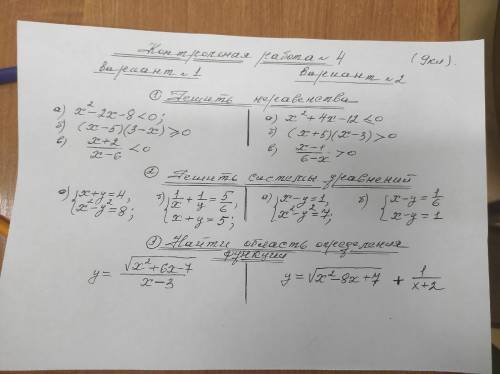 Контрольная работа № 4 (9 кл).
Вариант № 1 Вариант № 2
① Решить неравенства
а) x² - 2x - 8 < 0; а) x² + 4x - 12 ≤ 0
б) (x - 5)(3 - x) ≥ 0 б) (x + 5)(x - 3) > 0
в) (x+2)/(x-6) < 0 в) (x-1)/(6-x) > 0
② Решить системы уравнений
а) { x + y = 4, x² - y² = 8; б) { 1/x + 1/y = 5/6, x + y = 5; а) { x - y = 1, x² - y² = 7; б) { x - y = 1/6 x - y = 1
③ Найти область определения
функции
y = √(x² + 6x - 7)/(x - 3) y = √(x² - 8x + 7) + 1/(x+2)